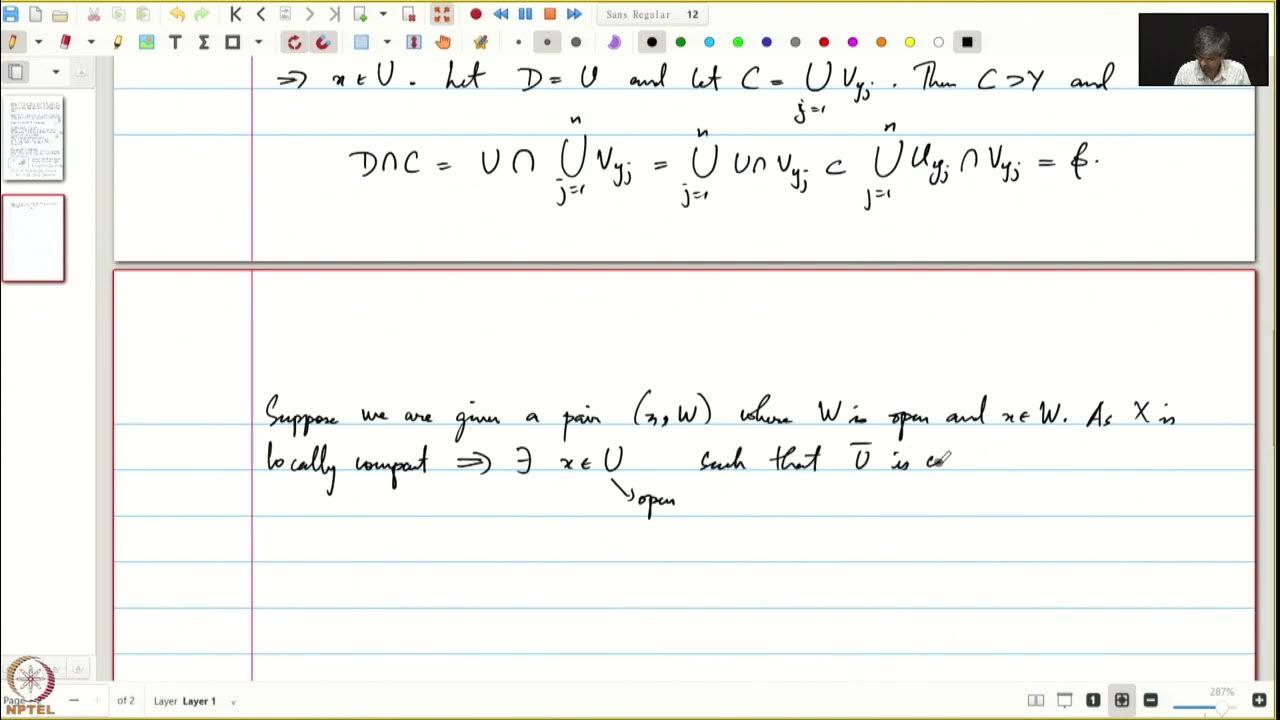 Sans Regular 12
⇒ x ∈ U. Let D = U and let C = ⋃_{j=1}^{n} V_{y_j}. Then C ⊃ Y and
D ∩ C = U ∩ ⋃_{j=1}^{n} V_{y_j} = ⋃_{j=1}^{n} U ∩ V_{y_j} ⊂ ⋃_{j=1}^{n} U_{y_j} ∩ V_{y_j} = ϕ.
Suppose we are given a pair (x, W) where W is open and x ∈ W. As X is
locally compact ⇒ ∃ x ∈ U such that U̅ is c
↘ open
Page
of 2 Layer Layer 1
287%
NPTEL